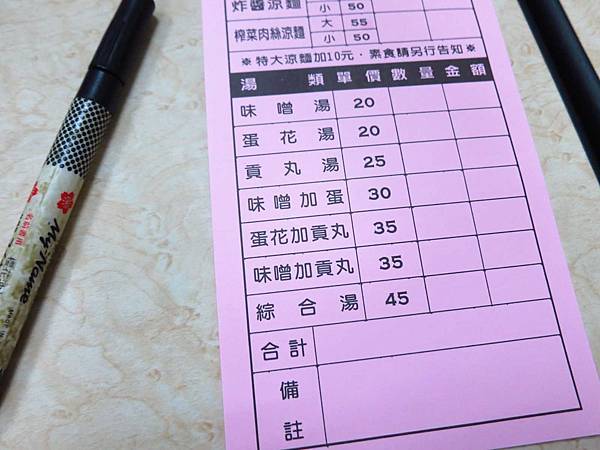 炸醬涼麵 小 50
大 55
榨菜肉絲涼麵
小 50
※特大涼麵加10元,素食請另行告知※
湯類 單價 數量 金額
味噌湯 20
蛋花湯 20
貢丸湯 25
味噌加蛋 30
蛋花加貢丸 35
味噌加貢丸 35
綜合湯 45
合計
備註
My Name